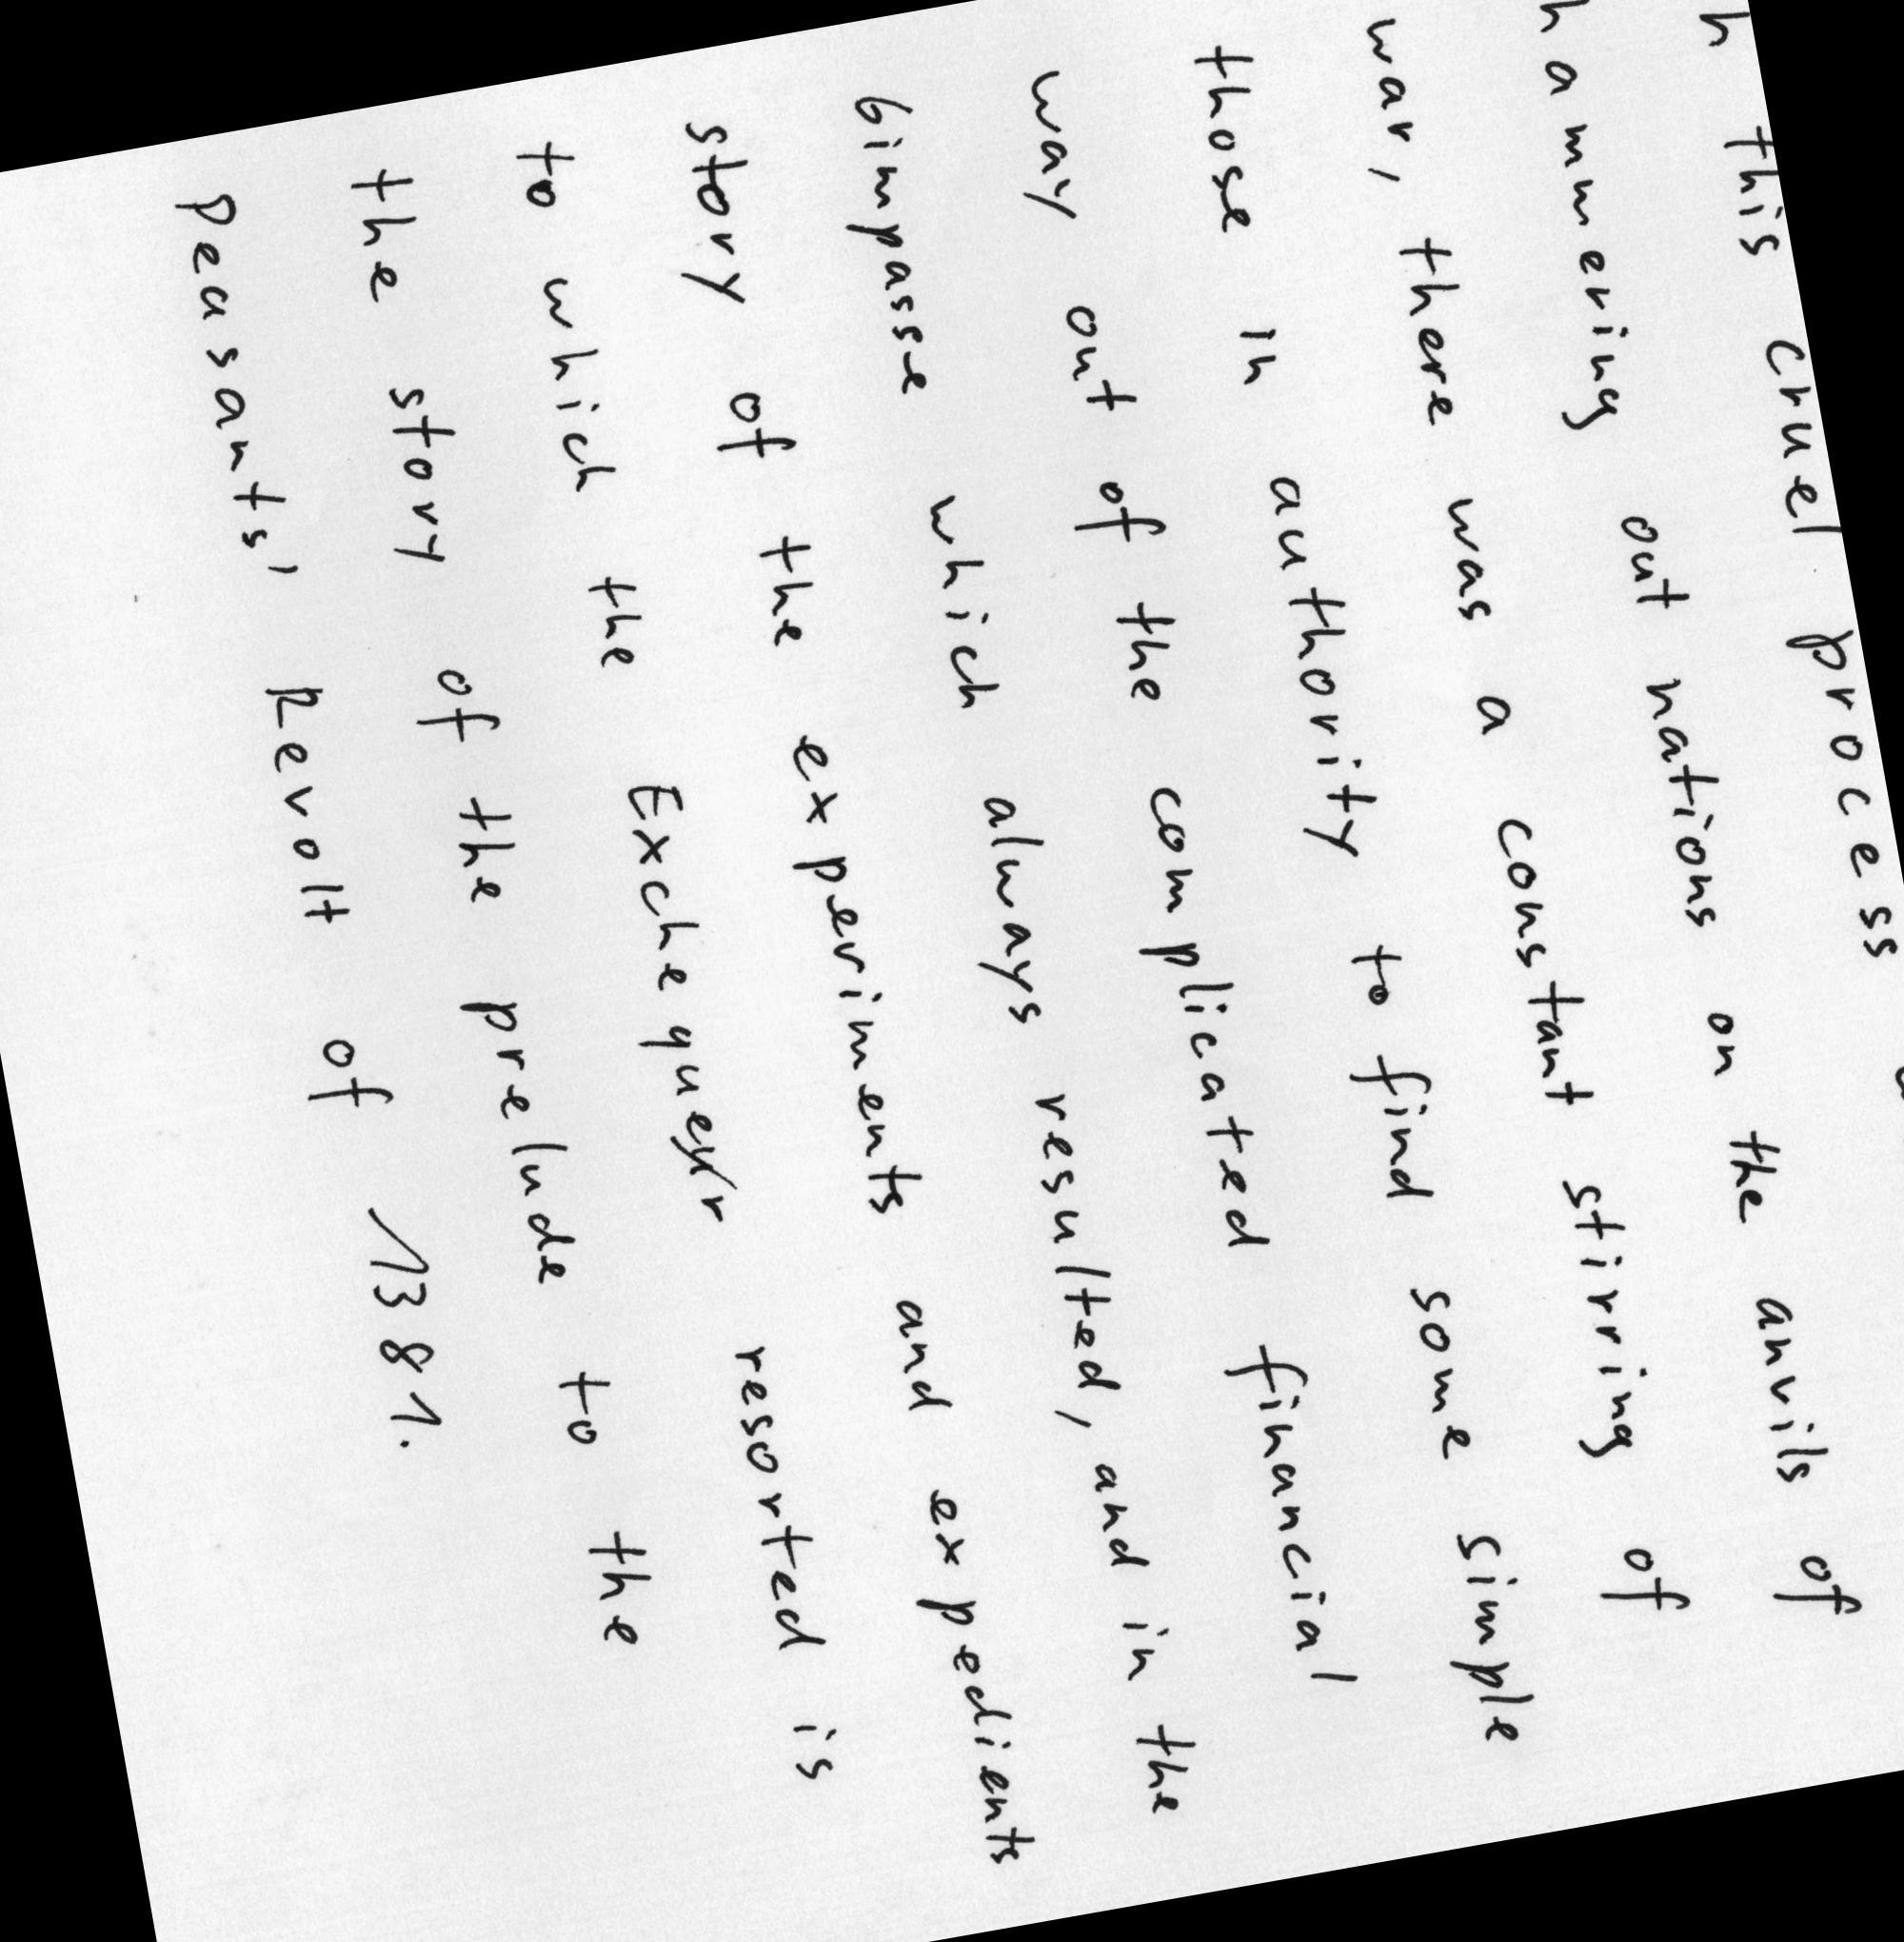 this cruel process
hammering out nations on the anvils of
war, there was a constant stirring of
those in authority to find some simple
way out of the complicated financial
bimpasse which always resulted, and in the
story of the experiments and expedients
to which the Exchequer resorted is
the story of the prelude to the
Peasants' Revolt of 1381.